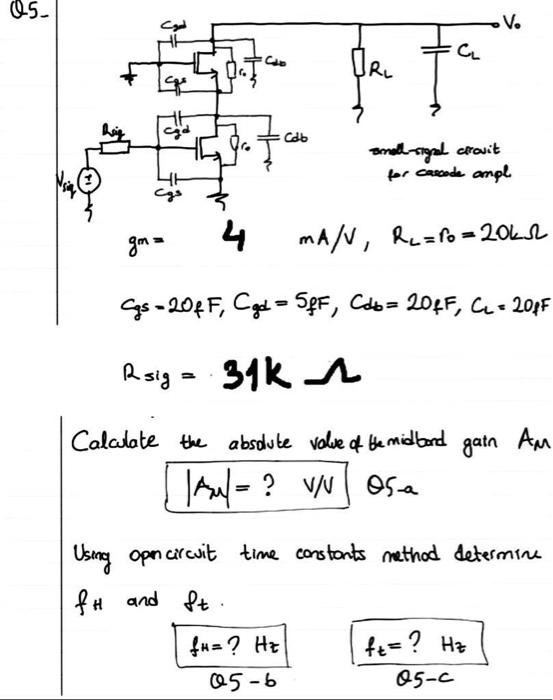 Q5-
Cgd
Vo
Cdb
ro
RL
CL
Cgs
Rsig
Cgd
ro
Cdb
Vsig
Cgs
small-signal circuit
for cascode ampl.
gm = 4 mA/V, RL = ro = 20kΩ
Cgs = 20fF, Cgd = 5fF, Cdb = 20fF, CL = 20fF
Rsig = 31K Ω
Calculate the absolute value of the midband gain AM
|AM| = ? V/V Q5-a
Using open circuit time constants method determine
fH and ft.
fH = ? Hz ft = ? Hz
Q5-b Q5-c